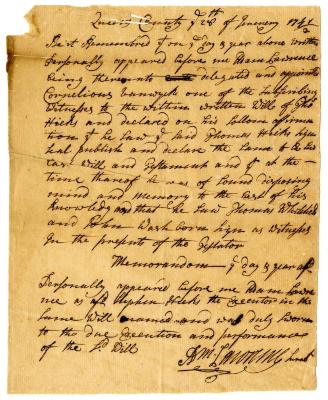 Queens County ye 28th of January 1741/2
Be it Remembred yt on ye day & year above written
Personally appeared before me Adam Lawrence
being thereunto delegated and appointed
Cornelious one of the Subscribing
Witnesses to the within written Will of Thos
Hicks and declared on his Sollem affirma
tion yt he Saw ye Said Thomas Hicks Sign
Seal publish and declare the Same to be his
Last Will and Testament and yt at the
time thereof he was of Sound disposing
mind and Memory to the best of his
Knowledg and that he Saw Thomas
and John Wash born Sign as Witnesses
In the presents of the Testator
Memorandom ye day & year afsd
Personally appeared before me Adam Lawre
nce as afsd Stephen Hicks the Executor in the
Same Will named and was duly Sworn
to the due Execution and performance
of the Sd Will
Adm Lawrence